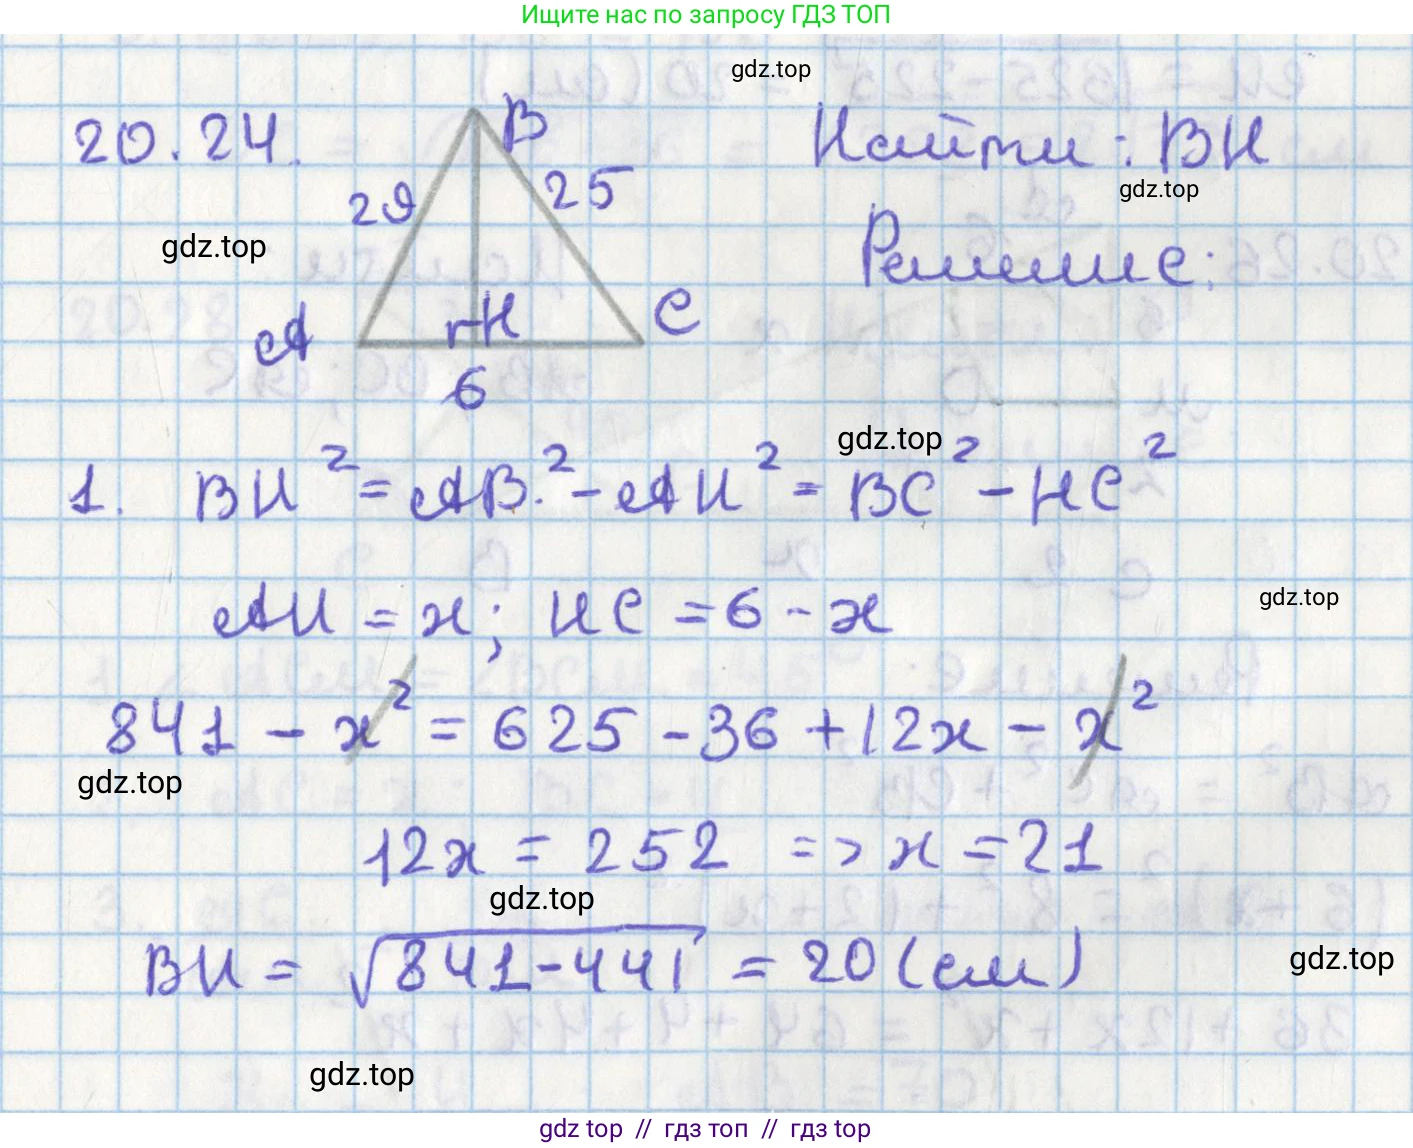 Ищите нас по запросу ГДЗ ТОП
gdz.top
20.24.
B
Найти: BH
29
25
gdz.top
gdz.top
Решение:
A
H
C
6
gdz.top
1. BH² = AB² - AH² = BC² - HC²
AH = x; HC = 6 - x
gdz.top
841 - x² = 625 - 36 + 12x - x²
gdz.top
12x = 252 => x = 21
gdz.top
BH = √841-441 = 20 (см)
gdz.top
gdz.top
gdz top // гдз топ // гдз top